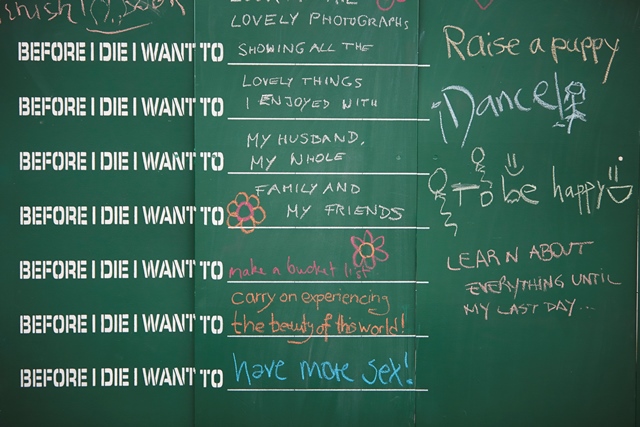 LOVELY PHOTOGRAPHS
BEFORE I DIE I WANT TO SHOWING ALL THE
BEFORE I DIE I WANT TO LOVELY THINGS
I ENJOYED WITH
BEFORE I DIE I WANT TO MY HUSBAND,
MY WHOLE
BEFORE I DIE I WANT TO FAMILY AND
MY FRIENDS
BEFORE I DIE I WANT TO make a bucket list
BEFORE I DIE I WANT TO carry on experiencing
the beauty of this world!
BEFORE I DIE I WANT TO have more sex!
Raise a puppy
¡Dance!
To be happy
LEARN ABOUT
EVERYTHING UNTIL
MY LAST DAY...